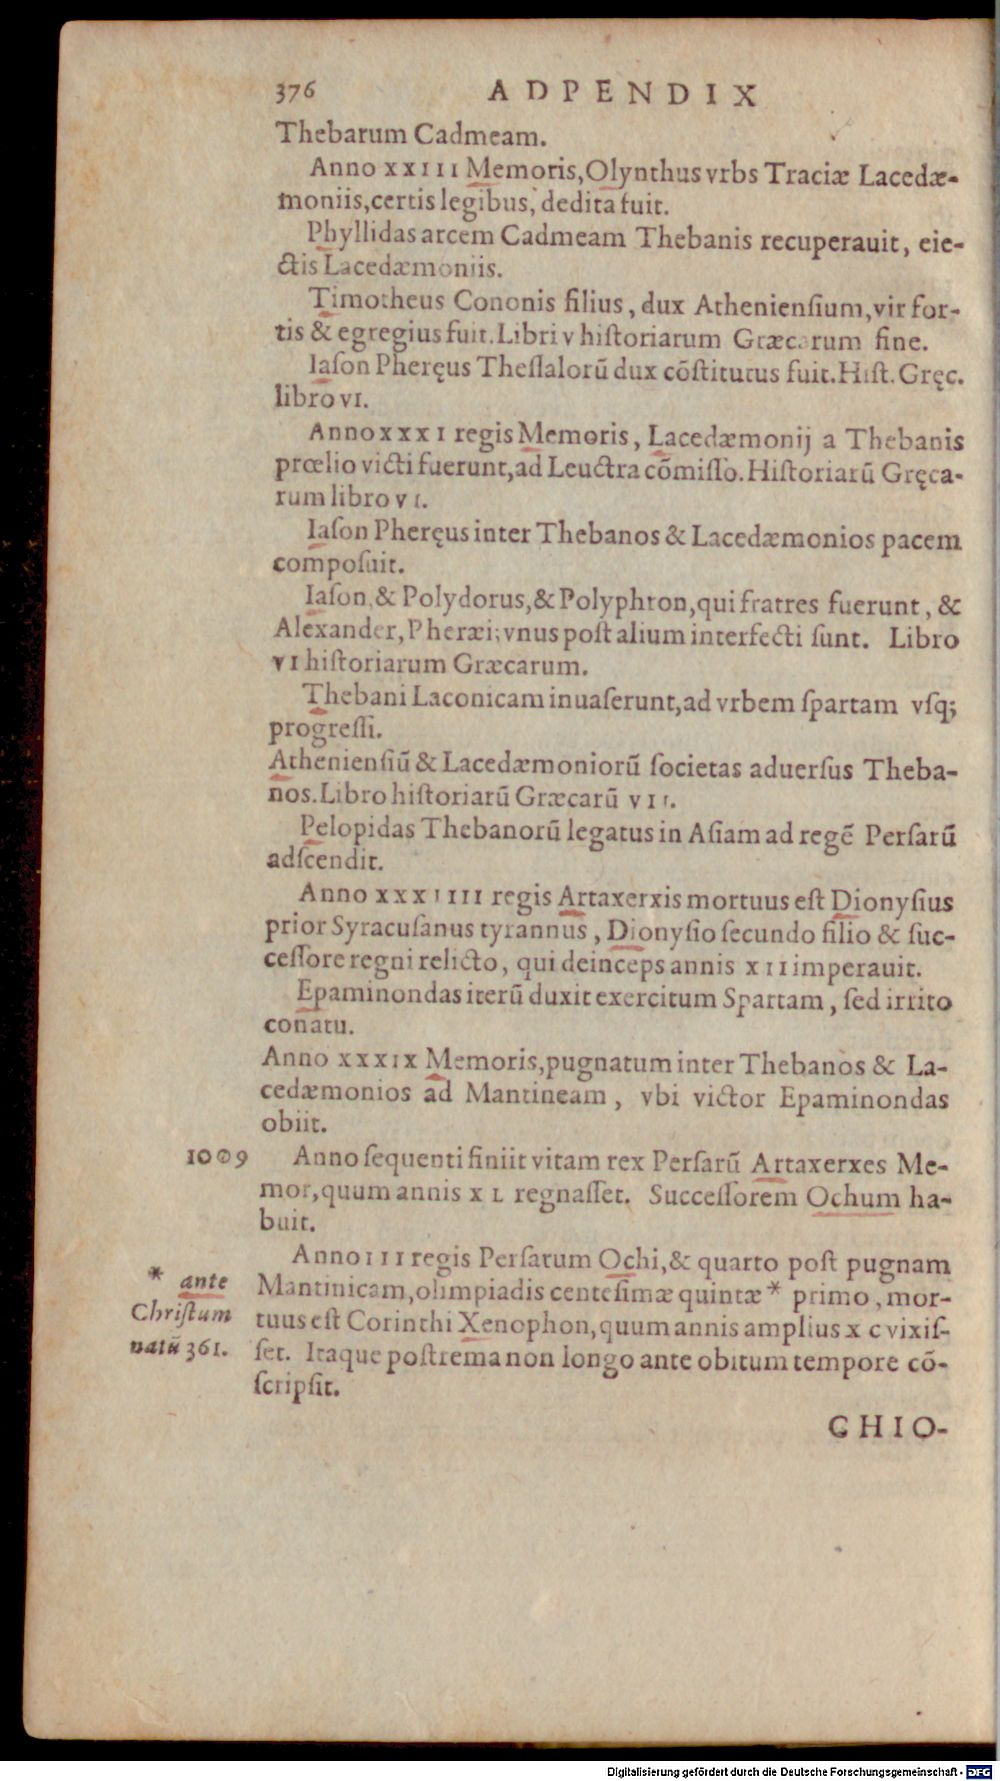 376 ADPENDIX
Thebarum Cadmeam.
Anno XXIII Memoris, Olynthus vrbs Traciæ Lacedæ-
moniis, certis legibus, dedita fuit.
Phyllidas arcem Cadmeam Thebanis recuperauit, eie-
ctis Lacedæmoniis.
Timotheus Cononis filius, dux Atheniensium, vir for-
tis & egregius fuit. Libri v historiarum Græcarum fine.
Iason Pheręus Thessalorū dux cōstitutus fuit. Hist. Gręc.
libro VI.
Anno XXXI regis Memoris, Lacedæmonij a Thebanis
prœlio victi fuerunt, ad Leuctra cōmisso. Historiarū Gręca-
rum libro VI.
Iason Pheręus inter Thebanos & Lacedæmonios pacem
composuit.
Iason, & Polydorus, & Polyphron, qui fratres fuerunt, &
Alexander, Pheræi; vnus post alium interfecti sunt. Libro
VI historiarum Græcarum.
Thebani Laconicam inuaserunt, ad vrbem spartam vsq;
progressi.
Atheniensiū & Lacedæmoniorū societas aduersus Theba-
nos. Libro historiarū Græcarū VII.
Pelopidas Thebanorū legatus in Asiam ad regē Persarū
adscendit.
Anno XXXIIII regis Artaxerxis mortuus est Dionysius
prior Syracusanus tyrannus, Dionysio secundo filio & suc-
cessore regni relicto, qui deinceps annis XII imperauit.
Epaminondas iterū duxit exercitum Spartam, sed irrito
conatu.
Anno XXXIX Memoris, pugnatum inter Thebanos & La-
cedæmonios ad Mantineam, vbi victor Epaminondas
obiit.
Anno sequenti finiit vitam rex Persarū Artaxerxes Me-
mor, quum annis XL regnasset. Successorem Ochum ha-
buit.
Anno III regis Persarum Ochi, & quarto post pugnam
* ante
Mantinicam, olimpiadis centesimæ quintæ * primo, mor-
Christum
tuus est Corinthi Xenophon, quum annis amplius XC vixis-
natū 361.
set. Itaque postrema non longo ante obitum tempore cō-
scripsit.
CHIO-
Digitalisierung gefördert durch die Deutsche Forschungsgemeinschaft - DFG